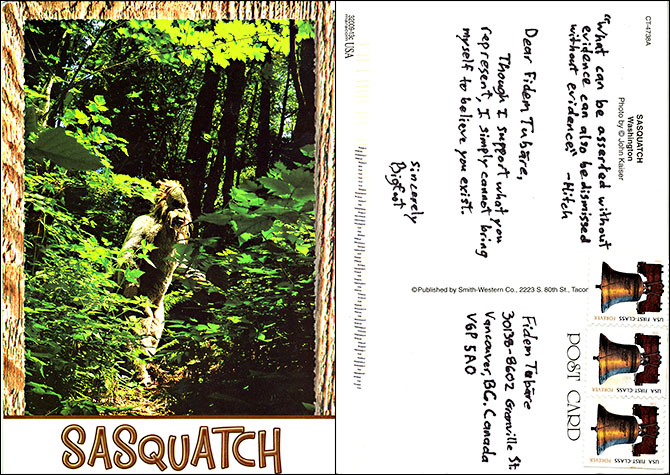 SASQUATCH
CT-4738A
SASQUATCH
Washington
Photo by © John Kaiser
"What can be asserted without
evidence can also be dismissed
without evidence" -Hitch
Dear Fidem Tubāre,
Though I support what you
represent, I simply cannot bring
myself to believe you exist.
Sincerely
Bigfoot
USA
©Published by Smith-Western Co., 2223 S. 80th St., Tacor
POST CARD
Fidem Tubāre
30138-8602 Granville St
Vancouver, BC, Canada
V6P 5A0
USA FIRST-CLASS FOREVER
USA FIRST-CLASS FOREVER
USA FIRST-CLASS FOREVER